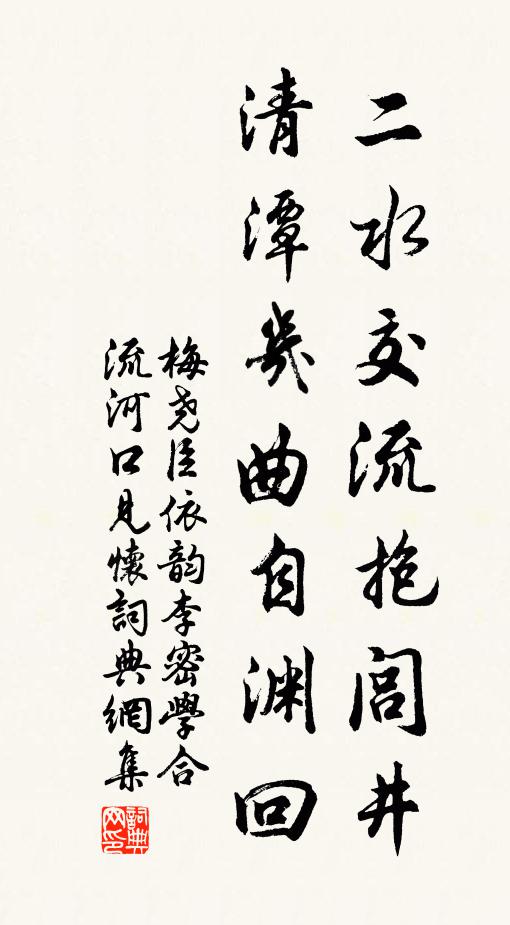 二水交流抱閭井
清潭幾曲自渊回
梅尧臣依韵李密學合
流河口見懷詞典網集
詞典
网印